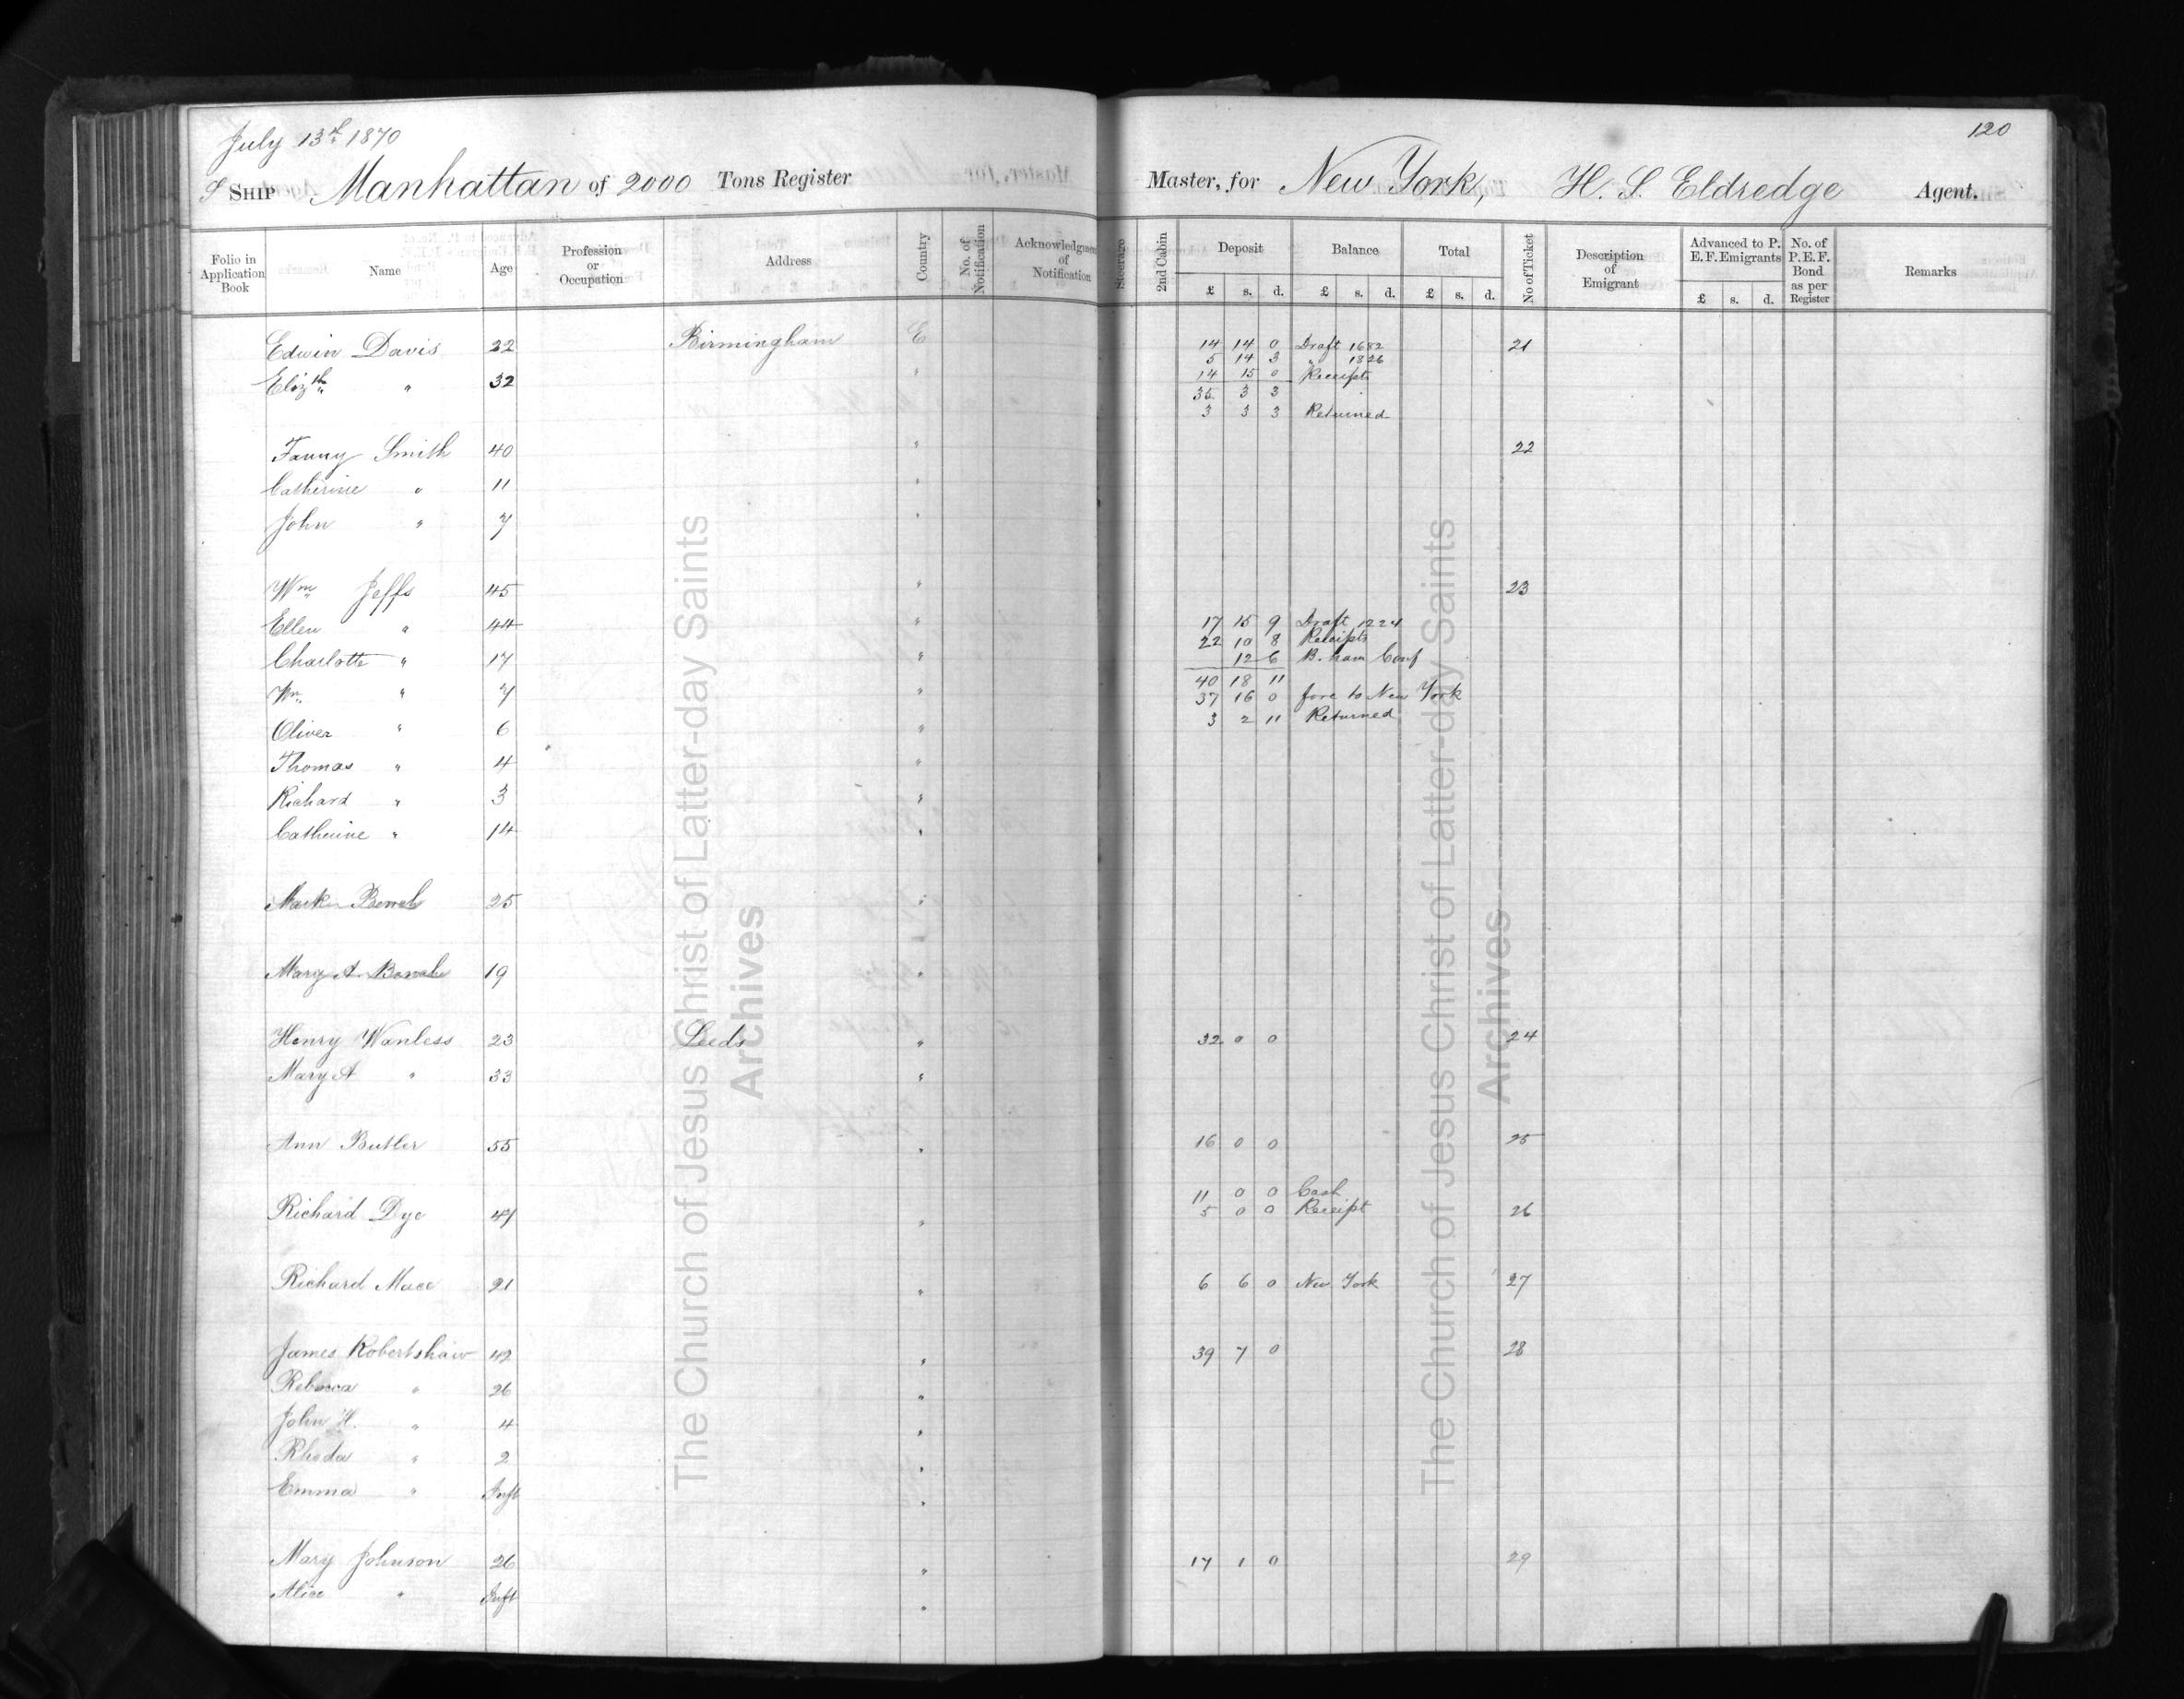 July 13th 1870
120
S SHIP Manhattan of 2000 Tons Register Master, for New York, H. S. Eldredge Agent.
Folio in Application Book Name Age Profession or Occupation Address Country No. of Notification Acknowledgment of Notification Steerage 2nd Cabin Deposit Balance Total No of Ticket Description of Emigrant Advanced to P. E. F. Emigrants No. of P. E. F. Bond as per Register Remarks
£ s. d. £ s. d. £ s. d. £ s. d.
Edwin Davis 22 Birmingham E 14 14 0 Draft 1682 21
5 14 3 " 1826
Elizth " 32 " 14 15 0 Receipts
35 3 3
3 3 3 Returned
Fanny Smith 40 " 22
Catherine " 11 "
John " 7 "
Wm Jeffs 45 " 23
Ellen " 44 " 17 15 9 Draft 1224
22 10 8 Receipts
Charlotte " 17 " 12 6 B.ham Conf
40 18 11
Wm " 7 " 37 16 0 fare to New York
Oliver " 6 " 3 2 11 Returned
Thomas " 4 "
Richard " 3 "
Catherine " 14 "
Mark 25 "
Mary A. 19 "
Henry Wanless 23 Leeds " 32 0 0 24
Mary A " 33 "
Ann Butler 55 " 16 0 0 25
11 0 0 Cash
Richard Dye 47 " 5 0 0 Receipt 26
Richard Mace 21 " 6 6 0 New York 27
James Robertshaw 42 " 39 7 0 28
Rebecca " 26 "
John H. " 4 "
Rhoda " 2 "
Emma " Inft "
Mary Johnson 26 " 17 1 0 29
Alice " Inft "
The Church of Jesus Christ of Latter-day Saints
Archives
The Church of Jesus Christ of Latter-day Saints
Archives